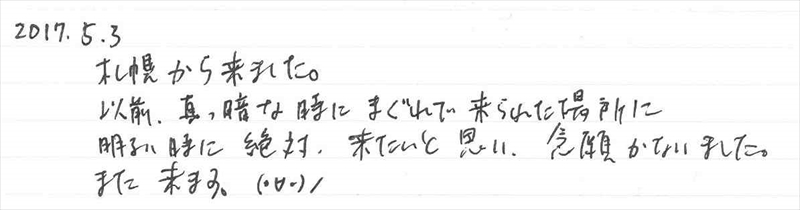 2017.5.3
札幌から来ました。
以前、真っ暗な時にまぐれで来られた場所に
明るい時に絶対、来たいと思い、念願かないました。
また来ます。(・∀・)ノ